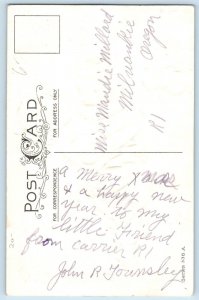 POST CARD
FOR CORRESPONDENCE
FOR ADDRESS ONLY
Miss Maudie Millard
Milwaukie
Oregon
R1
A Merry Xmas
& a happy new
year to my
little Friend
from carrier R1
John R Townsley